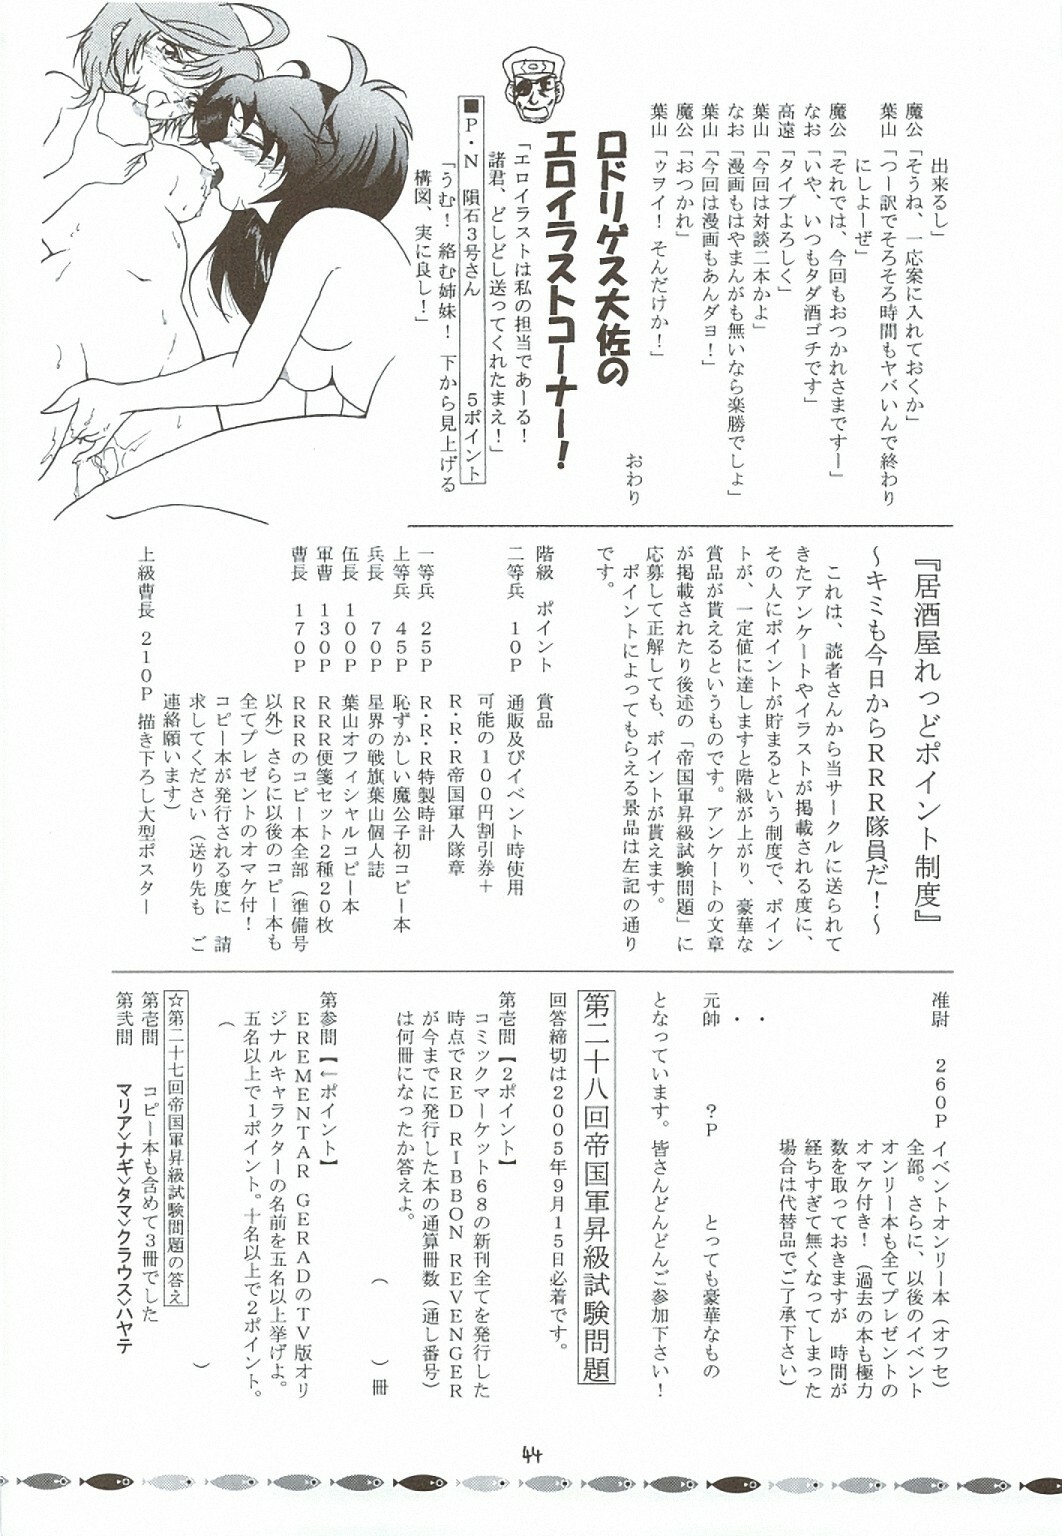 出来るし」
魔公「そうね、一応案に入れておくか」
葉山「つー訳でそろそろ時間もヤバいんで終わり
にしよーぜ」
魔公「それでは、今回もおつかれさまですー」
なお「いや、いつもタダ酒ゴチです」
高遠「タイプよろしく」
葉山「今回は対談二本かよ」
なお「漫画もはやまんがも無いなら楽勝でしょ」
葉山「今回は漫画もあんダヨ！」
魔公「おつかれ」
葉山「ゥヲイ！そんだけか！」
おわり
ロドリゲス大佐の
エロイラストコーナー！
「エロイラストは私の担当であーる！
諸君、どしどし送ってくれたまえ！」
■P・N 隕石３号さん ５ポイント
「うむ！絡む姉妹！下から見上げる
構図、実に良し！」
『居酒屋れっどポイント制度』
～キミも今日からＲＲＲ隊員だ！～
これは、読者さんから当サークルに送られて
きたアンケートやイラストが掲載される度に、
その人にポイントが貯まるという制度で、ポイン
トが、一定値に達しますと階級が上がり、豪華な
賞品が貰えるというものです。アンケートの文章
が掲載されたり後述の「帝国軍昇級試験問題」に
応募して正解しても、ポイントが貰えます。
ポイントによってもらえる景品は左記の通り
です。
階級 ポイント 賞品
二等兵 １０Ｐ 通販及びイベント時使用
可能の１００円割引券＋
Ｒ・Ｒ・Ｒ帝国軍入隊章
一等兵 ２５Ｐ Ｒ・Ｒ・Ｒ特製時計
上等兵 ４５Ｐ 恥ずかしい魔公子初コピー本
兵長 ７０Ｐ 星界の戦旗葉山個人誌
伍長 １００Ｐ 葉山オフィシャルコピー本
軍曹 １３０Ｐ ＲＲＲ便箋セット２種２０枚
曹長 １７０Ｐ ＲＲＲのコピー本全部（準備号
以外）さらに以後のコピー本も
全てプレゼントのオマケ付！
コピー本が発行される度に 請
求してください（送り先も ご
連絡願います）
上級曹長 ２１０Ｐ 描き下ろし大型ポスター
准尉 ２６０Ｐ イベントオンリー本（オフセ）
全部。さらに、以後のイベント
オンリー本も全てプレゼントの
オマケ付き！（過去の本も極力
数を取っておきますが 時間が
経ちすぎて無くなってしまった
場合は代替品でご了承下さい）
・
・
元帥 ？Ｐ とっても豪華なもの
となっています。皆さんどんどんご参加下さい！
第二十八回帝国軍昇級試験問題
回答締切は２００５年９月１５日必着です。
第壱問【２ポイント】
コミックマーケット６８の新刊全てを発行した
時点でＲＥＤ ＲＩＢＢＯＮ ＲＥＶＥＮＧＥＲ
が今までに発行した本の通算冊数（通し番号）
は何冊になったか答えよ。
（ ）冊
第参問【←ポイント】
ＥＲＥＭＥＮＴＡＲ ＧＥＲＡＤのＴＶ版オリ
ジナルキャラクターの名前を五名以上挙げよ。
五名以上で１ポイント。十名以上で２ポイント。
（ ）
☆第二十七回帝国軍昇級試験問題の答え
第壱問 コピー本も含めて３冊でした
第弐問 マリア＞ナギ＞タマ＞クラウス＞ハヤテ
44